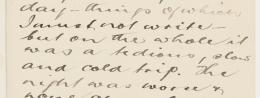 day - things of which
I must not write -
but on the whole it
was a tedious, slow
and cold trip. The
night was worse &